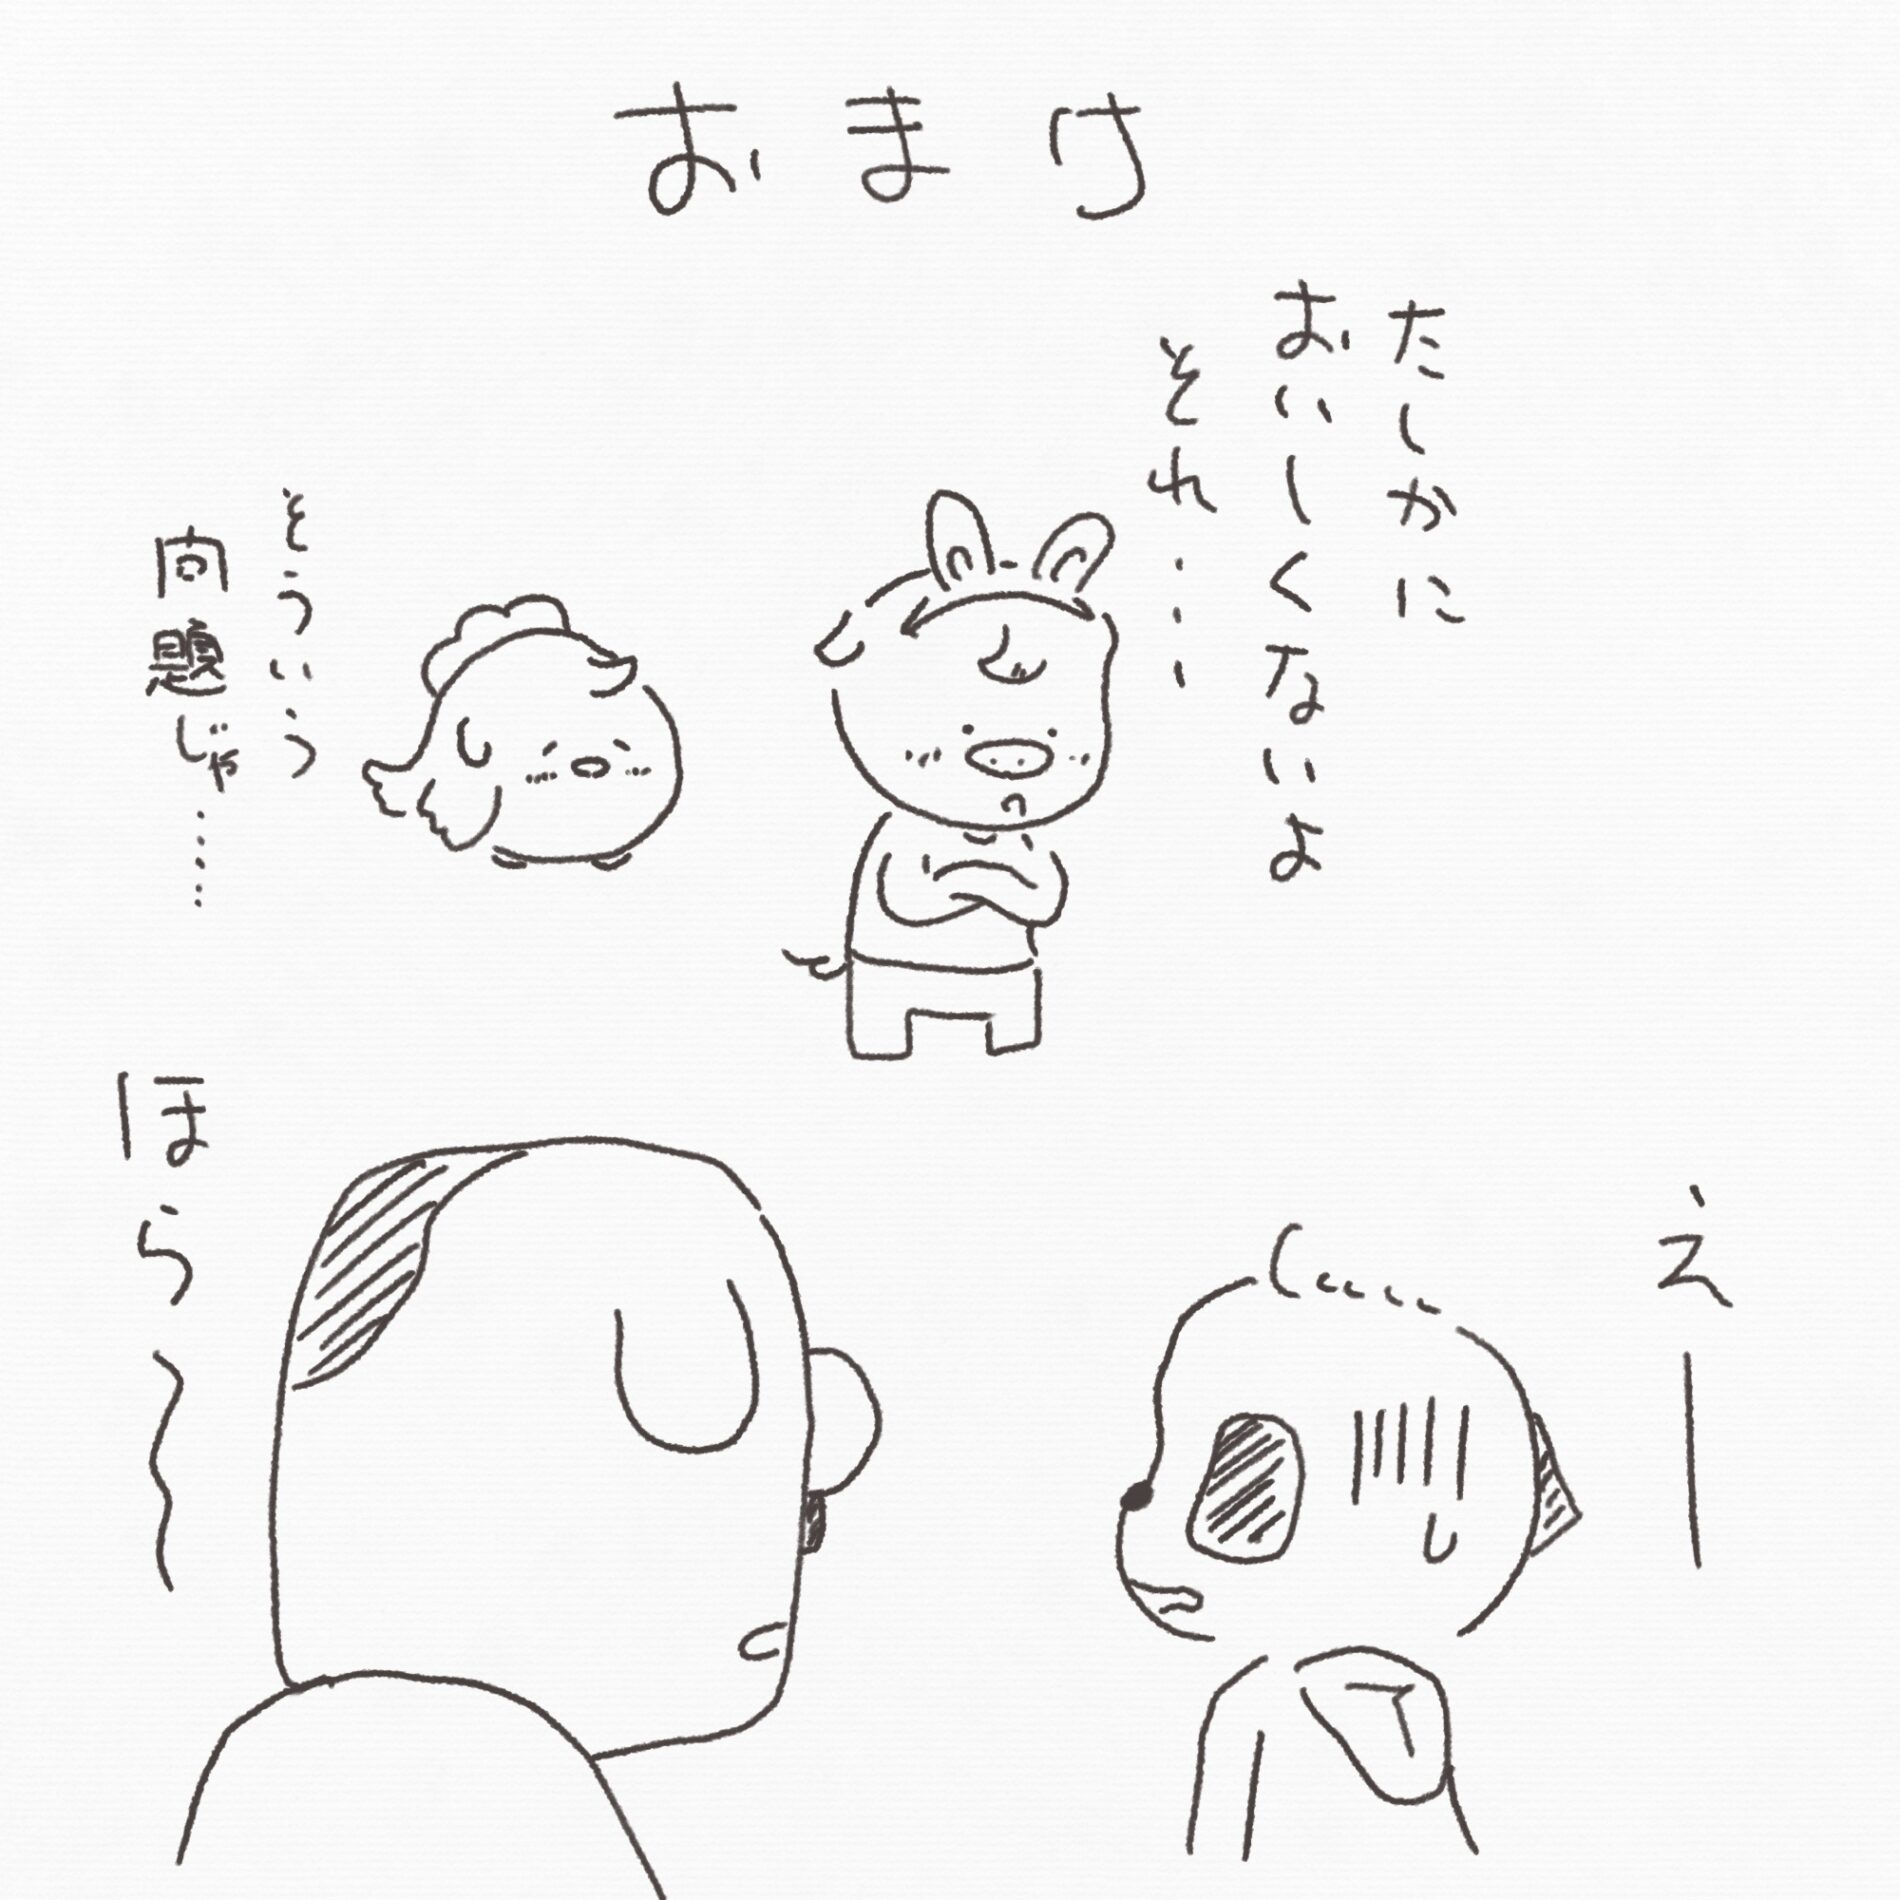 おまけ
たしかに
おいしくないよ
それ...
そういう
問題じゃ.....
えー
ほら〜